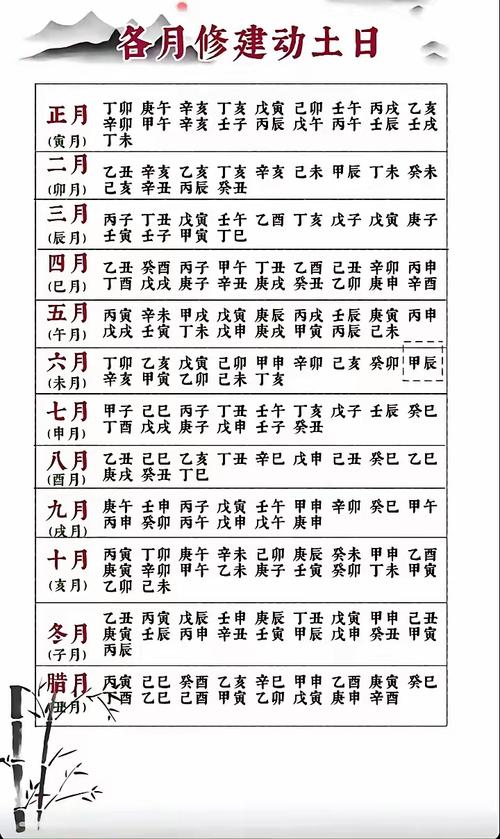 各月修建动土日
正月
(寅月)
丁卯 庚午 辛亥 丁亥 戊寅 己卯 壬午 丙戌 乙亥
辛卯 甲午 辛亥 壬子 丙辰 戊午 丙午 壬辰 壬戌
丁未
二月
(卯月)
乙丑 辛亥 乙亥 丁亥 辛亥 己未 甲辰 丁未 癸未
己亥 辛丑 丙辰 癸丑
三月
(辰月)
丙子 丁丑 戊寅 壬午 乙酉 丁亥 戊子 戊寅 庚子
壬寅 壬子 甲寅 丁巳
四月
(巳月)
乙丑 癸酉 丙子 甲午 丁丑 乙酉 己丑 辛卯 丙申
丁酉 戊戌 庚子 辛丑 庚戌 癸丑 乙卯 庚申 辛酉
五月
(午月)
丙寅 辛未 甲戌 戊寅 庚辰 丙戌 壬辰 庚寅 丙申
戊戌 壬寅 丁未 戊申 庚戌 甲寅 丙辰 己未
六月
(未月)
丁卯 乙亥 戊寅 己卯 甲申 辛卯 己亥 癸卯 甲辰
辛亥 甲寅 乙卯 己未 丁亥
七月
(申月)
甲子 己巳 丙子 丁丑 壬午 丁亥 戊子 壬辰 癸巳
丁酉 戊戌 庚子 戊申 壬子 癸丑
八月
(酉月)
乙丑 己巳 乙亥 丁丑 辛巳 戊申 己丑 癸巳 乙巳
庚戌 癸丑 丁巳
九月
(戌月)
庚午 壬申 丙子 戊寅 壬午 甲申 辛卯 癸巳 甲午
丙申 癸卯 丙午 戊申 戊午 庚申
十月
(亥月)
丙寅 丁卯 庚午 辛未 己卯 庚辰 癸未 甲申 乙酉
庚寅 辛卯 甲午 乙未 庚子 壬寅 癸卯 丁未 甲寅
乙卯 己未
冬月
(子月)
乙丑 丙寅 戊辰 壬申 庚辰 丁丑 戊寅 甲申 己丑
庚寅 壬辰 丙申 辛丑 壬寅 甲辰 戊申 癸丑 甲寅
丙辰
腊月
(丑月)
丙寅 己巳 癸酉 乙亥 辛巳 甲申 丙戌 庚寅 癸巳
丁酉 乙巳 己酉 甲寅 乙卯 戊寅 庚申 辛酉